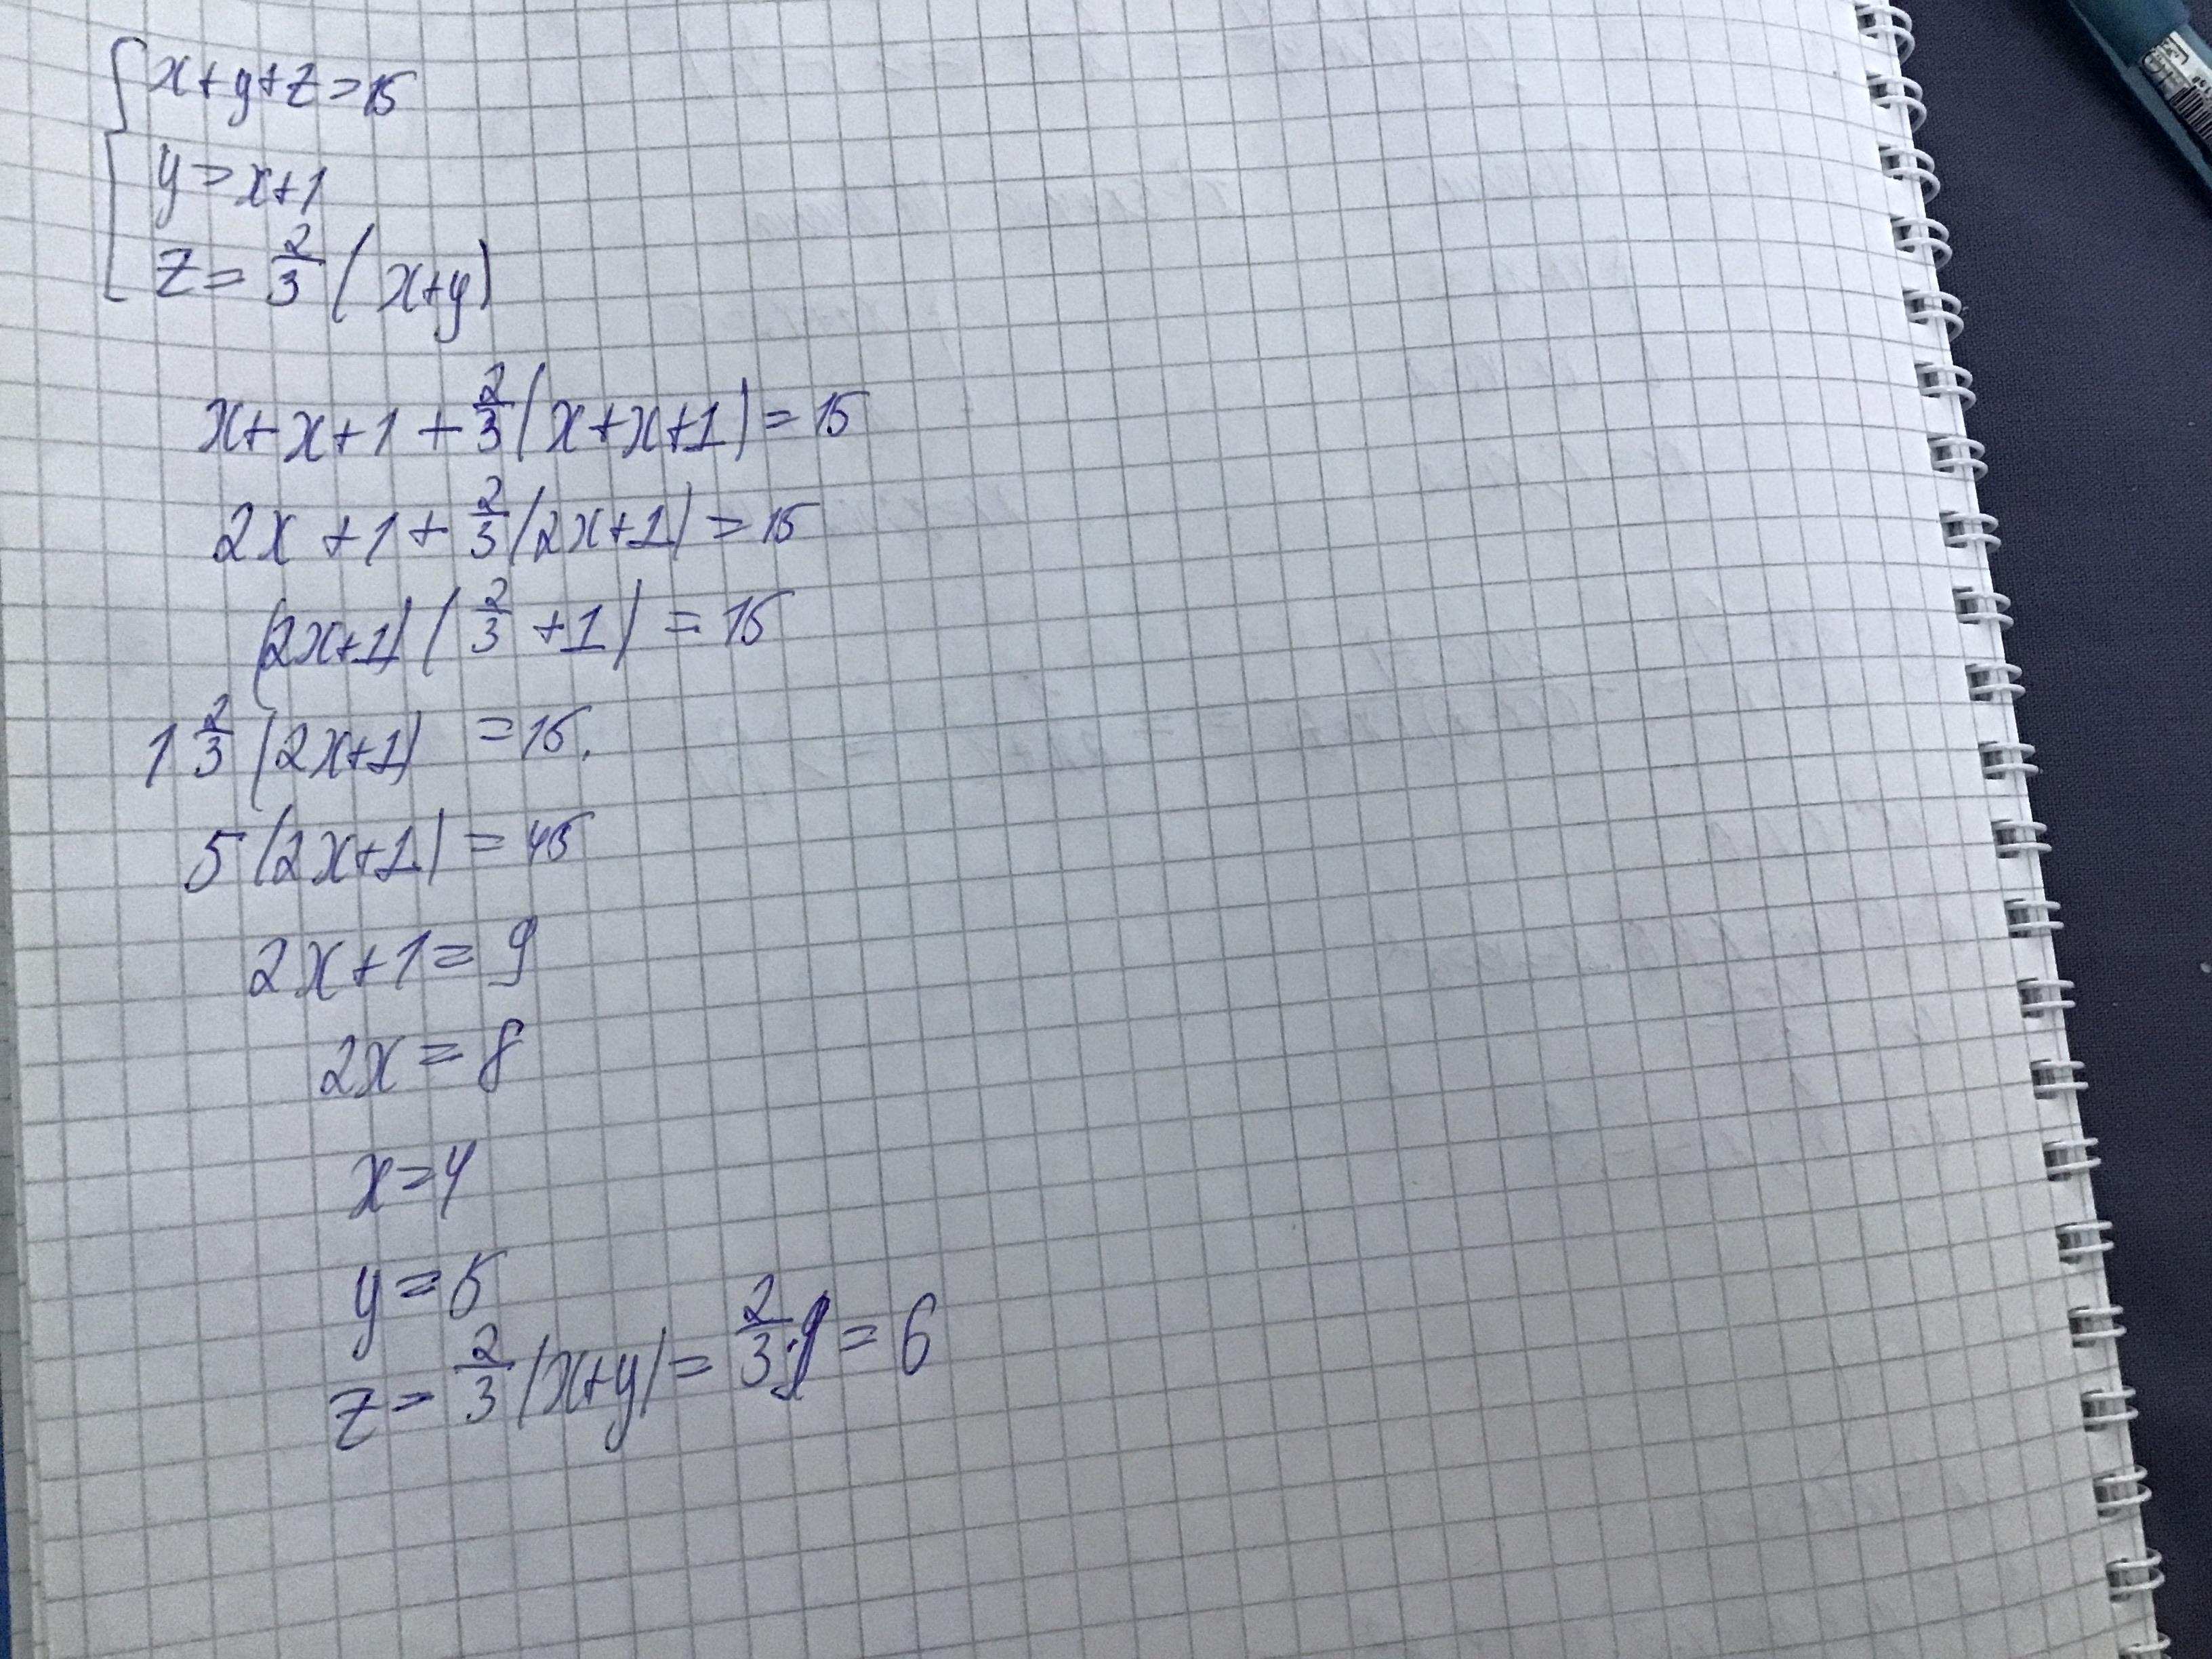 x+y+z=15
y=x+1
z=2/3(x+y)
x+x+1+2/3(x+x+1)=15
2x+1+2/3(2x+1)=15
(2x+1)(2/3+1)=15
1 2/3(2x+1)=15.
5(2x+1)=45
2x+1=9
2x=8
x=4
y=5
z=2/3(x+y)=2/3·9=6